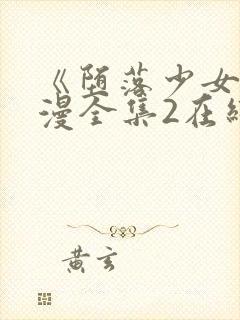 《堕落少女
漫全集2在
黄玄